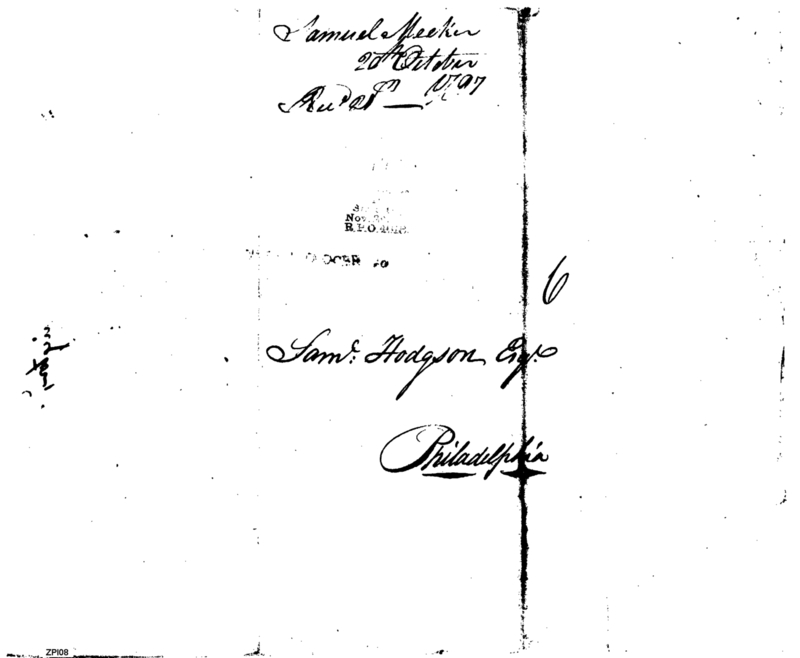 Samuel Meeker
20th October
Recd 21st — 1797
Nov.
R.P.O.
OCBR 20
6
Saml. Hodgson Esqr.
Philadelphia
ZPI08